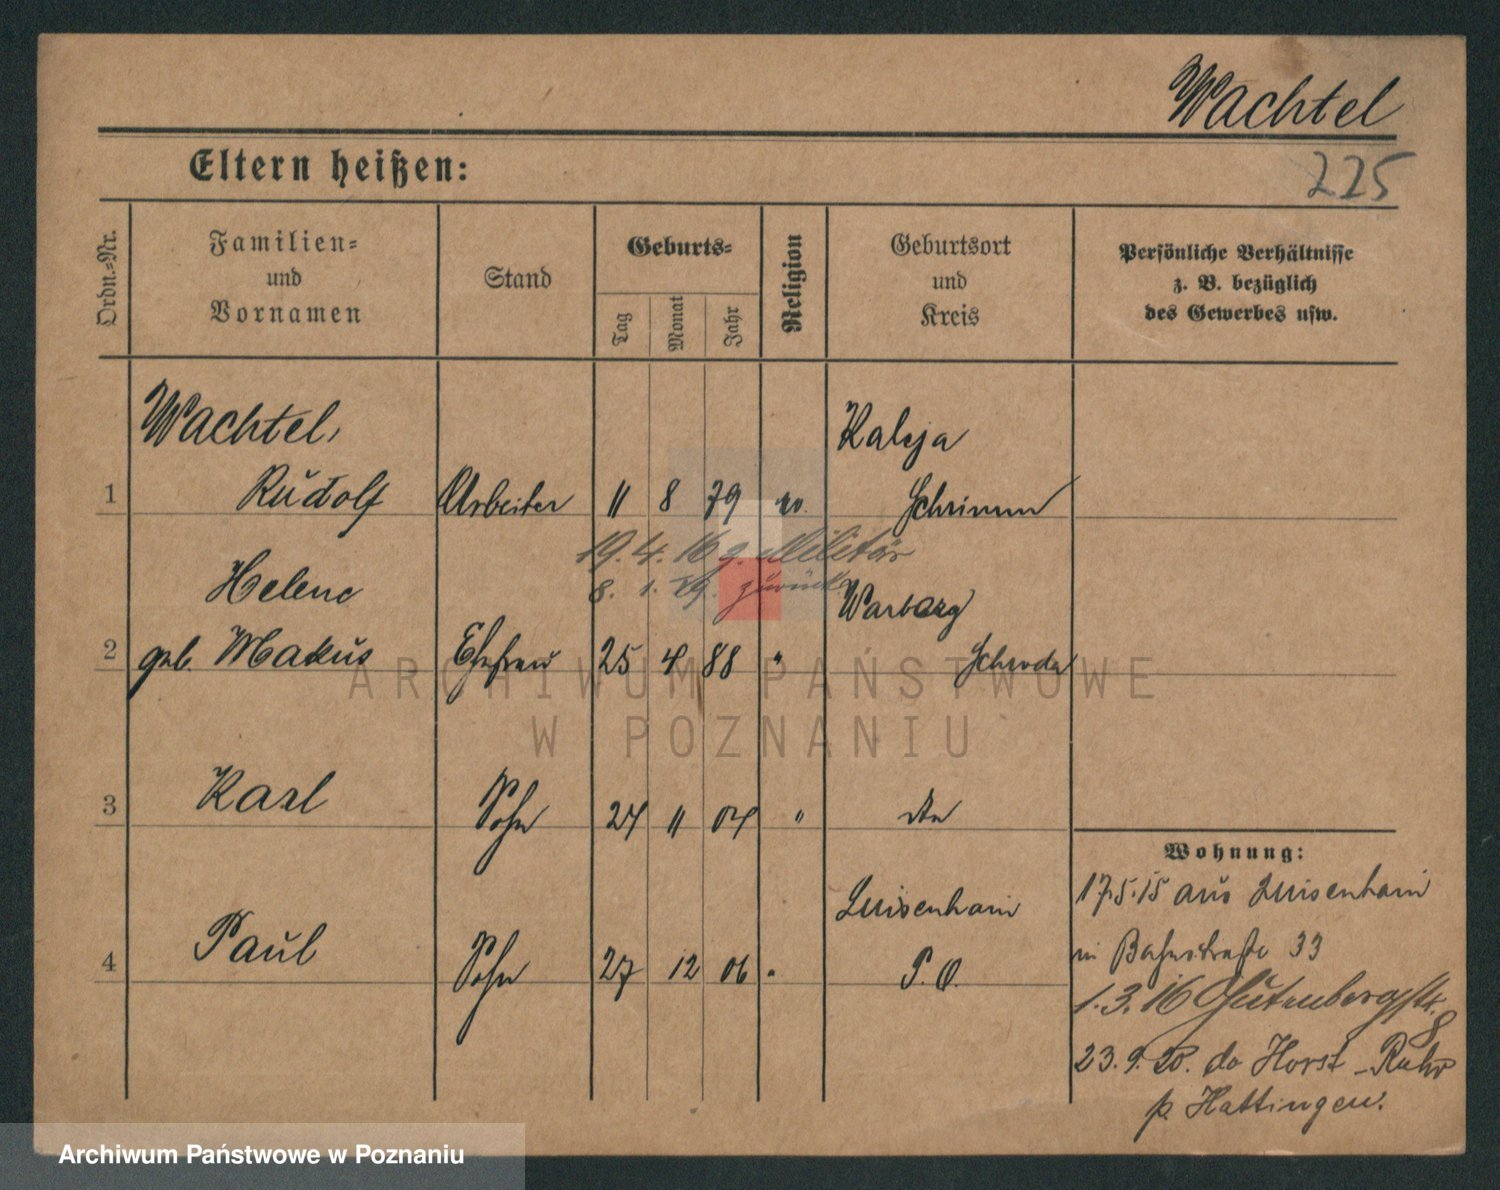 Wachtel
225
Eltern heißen:
Ordn.=Nr.
Familien=
und
Vornamen
Stand
Geburts=
Tag
Monat
Jahr
Religion
Geburtsort
und
Kreis
Persönliche Verhältnisse
z. B. bezüglich
des Gewerbes usw.
Wachtel,
Kaleja
1 Rudolf Arbeiter 11 8 79 Schrimm
19. 4. 16 z. Militär
8. 1. 19. zurück
Helene
2 geb. Makus Ehefrau 25 4 88 " Schroda
ARCHIWUM PAŃSTWOWE
W POZNANIU
3 Karl Sohn 24 11 04 "
Wohnung:
Luisenhain
17.5.15 aus Luisenhain
4 Paul Sohn 27 12 06 " P. O.
in Bahnstraße 33
1. 3. 16 Gutenbergstr. 8
23. 9. 20. Horst-Ruhr
p. Hattingen.
Archiwum Państwowe w Poznaniu